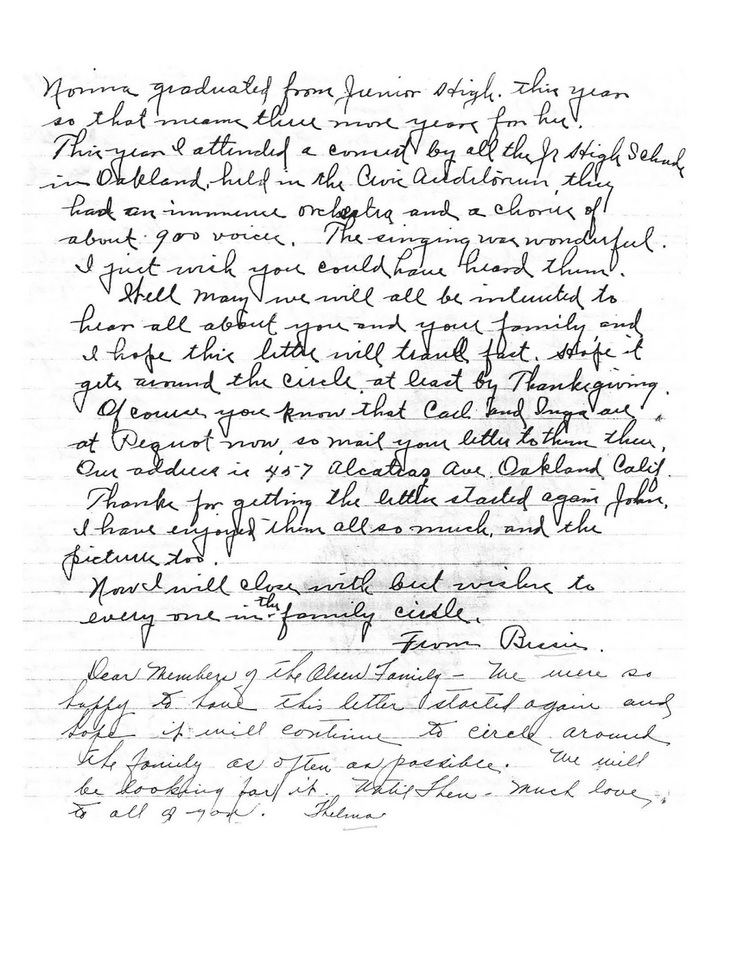 Norma graduated from Junior High. this year
so that means three more years for her.
This year I attended a concert by all the Jr High Schools
in Oakland, held in the Civic Auditorium, they
had an immense orchestra and a chorus of
about 900 voices. The singing was wonderful.
I just wish you could have heard them.
Well Mary we will all be interested to
hear all about you and your family, and
I hope this letter will travel fast. Hope it
gets around the circle, at least by Thanksgiving.
Of course you know that Carl and Inga are
at Pequot now, so mail your letter to them there,
Our address is 457 Alcatraz Ave. Oakland Calif.
Thanks for getting the letter started again, John,
I have enjoyed them all so much, and the
pictures too.
Now I will close with best wishes to
every one in the family circle.
From Bessie.
Dear Members of the Olsen Family - We were so
happy to have this letter started again and
hope it will continue to circle around
the family as often as possible. We will
be looking for it. Until then - much love
to all of you. Thelma